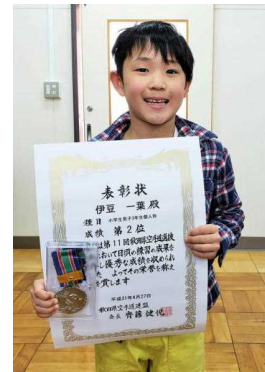 表彰状
伊豆 一葉 殿
種目 小学生男子3年生個人形
成績 第2位
は第11回秋田県空手道選抜
において日頃の練習の成果を
し優秀な成績を収められ
た よってその栄誉を称え
を賞します
平成31年4月27日
秋田県空手道連盟
会長 齊藤 健悦